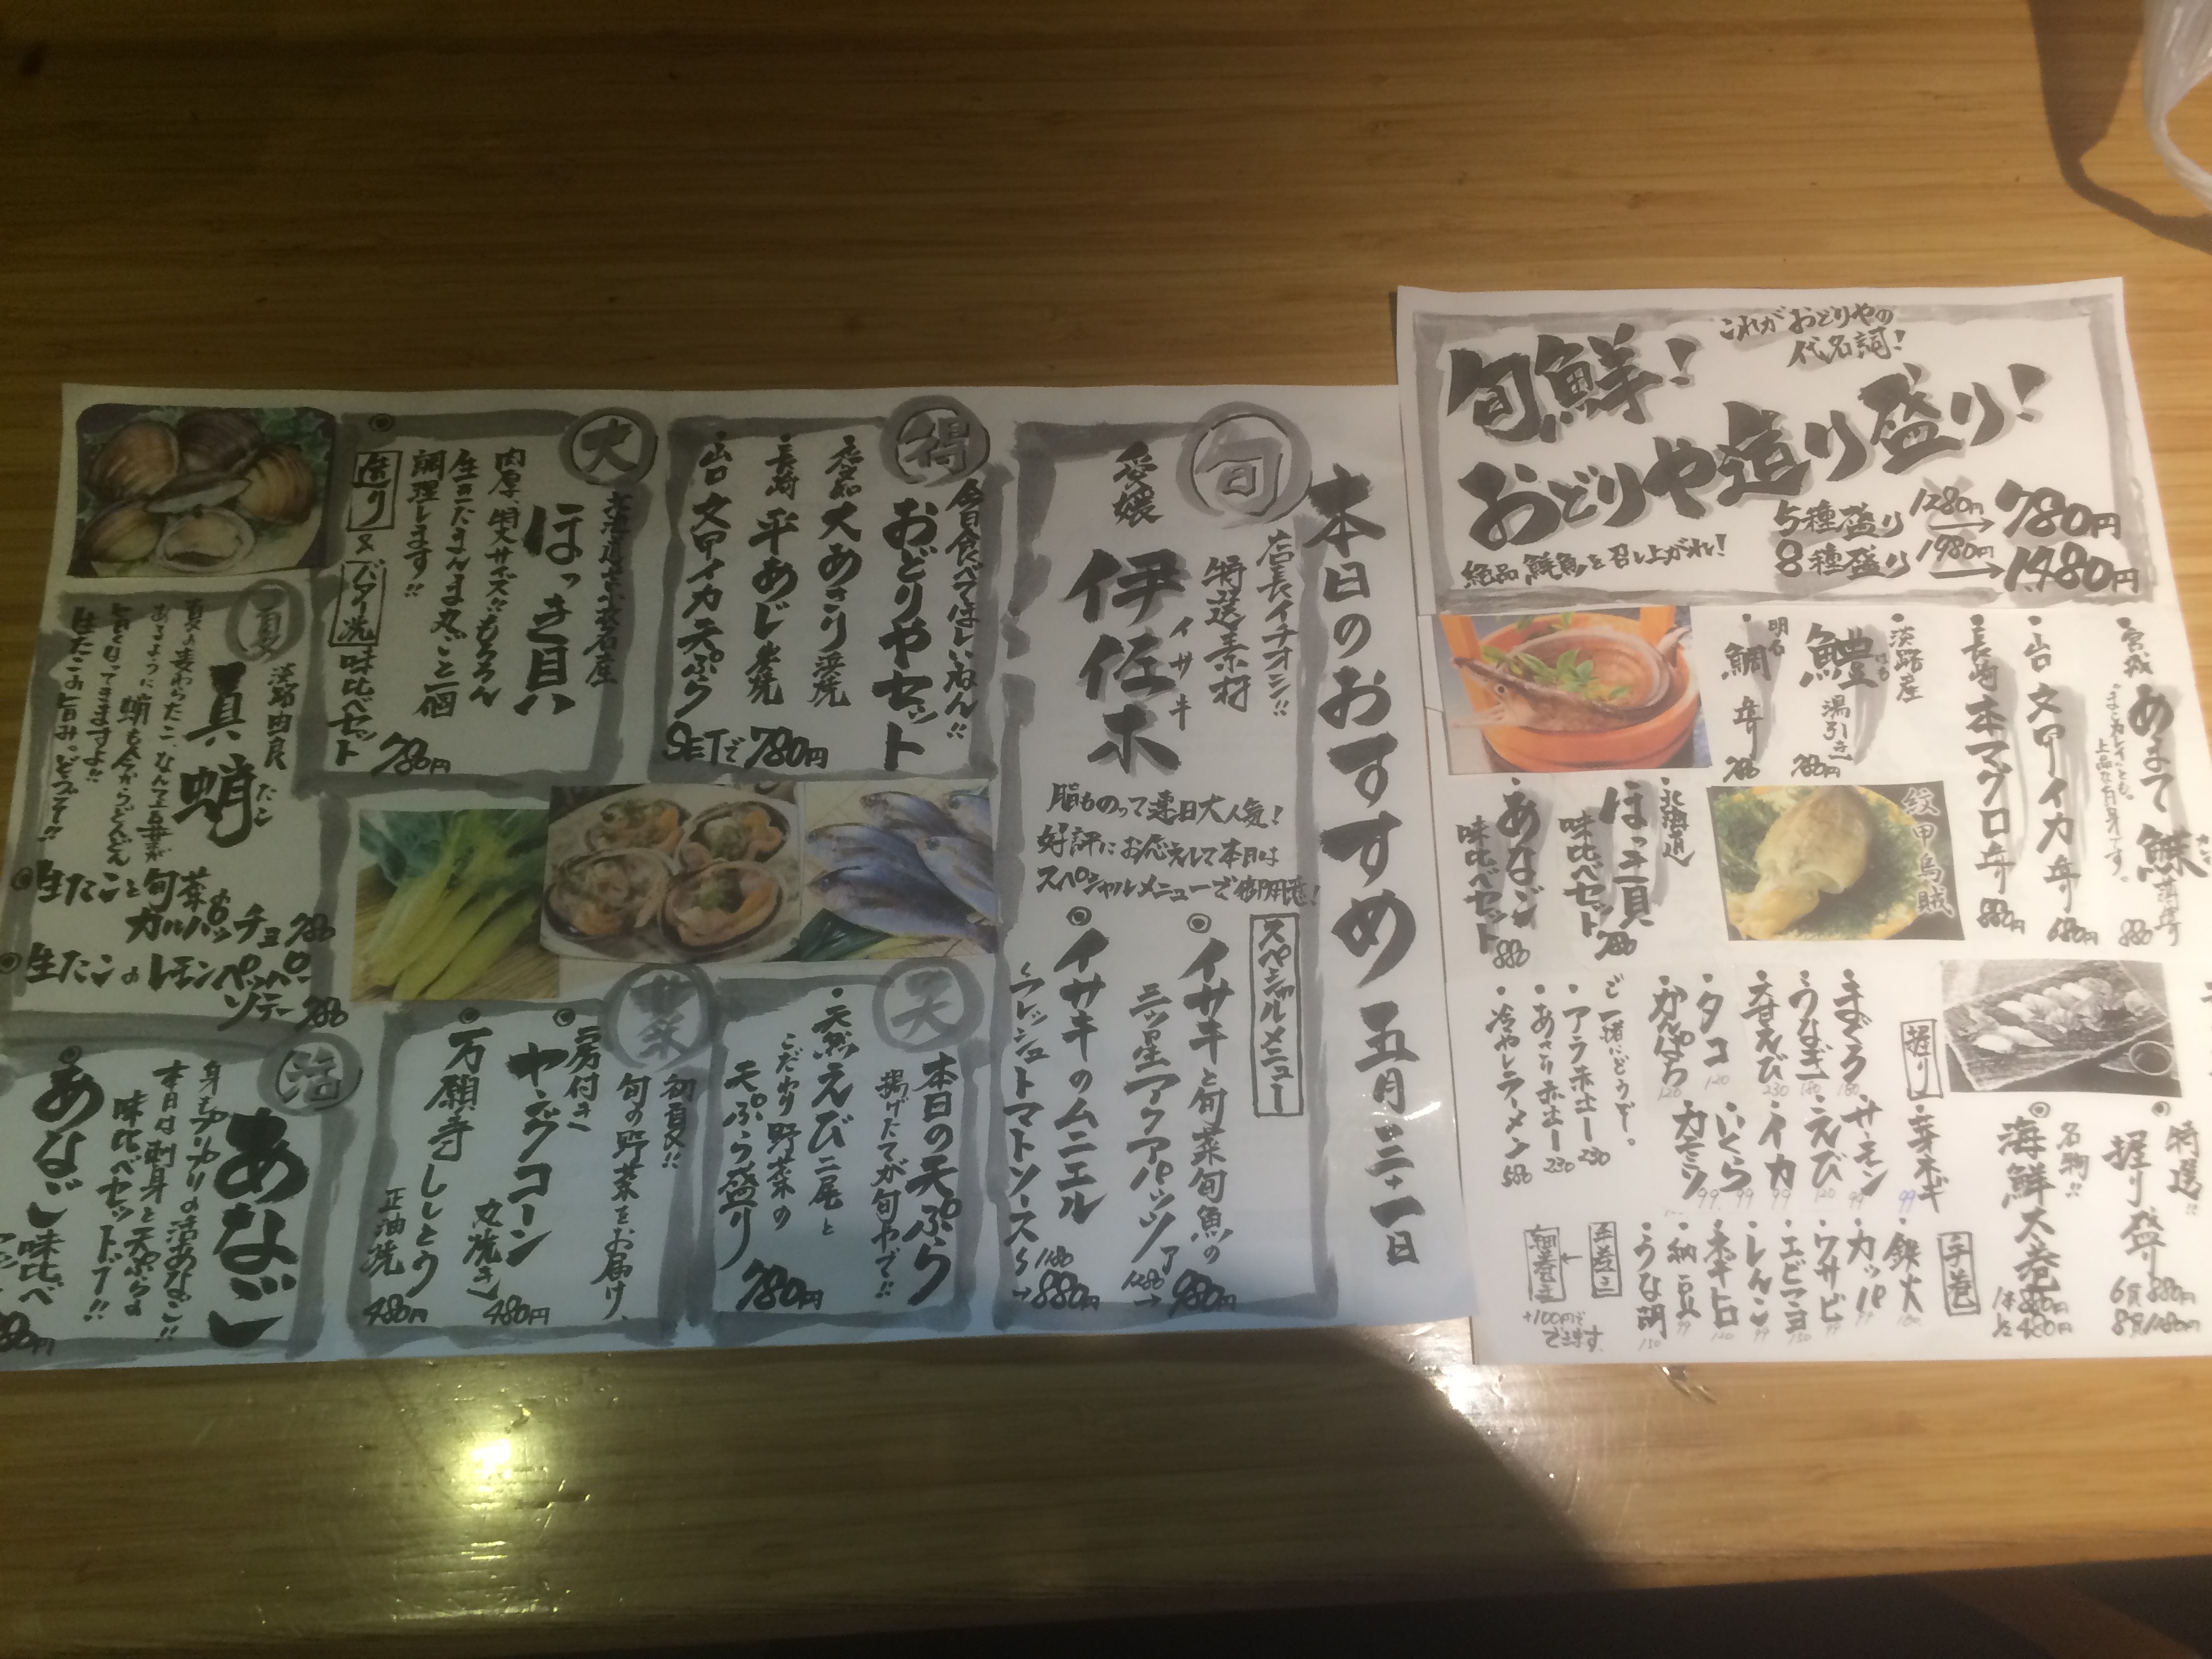 これがおどりやの
代名詞!
旬鮮!
おどりや造り盛り!
5種盛り 1280円→780円
8種盛り 1980円→1,480円
絶品鮮魚を召し上がれ!
宮城
あまて鰈
880
・山口
文甲イカ造り
680円
・長崎
本マグロ造り
880円
・淡路産
鱧
はも
湯引き
780円
・明石
鯛造り
780
紋甲烏賊
・北海道
ほっき貝
味比べセット
780
・あなご
味比べセット
880
ご一緒にどうぞ。
・アラ赤土一 230
・あさり赤土一 230
・冷やしラーメン 580
特選!!
◎握り盛り
6貫 880円
8貫 1180円
名物!!
◎海鮮太巻
1本 880円
½ 480円
握り
・まぐろ 180
・うなぎ 180
・甘えび 230
・タコ 120
・かんぱち 120
・サーモン 99
・えび 120
・イカ 99
・いくら 99
・カニミソ 99
・芽ネギ 99
手巻
・鉄火 180
・カッパ 99
・ワサビ 99
・エビマヨ 150
・レんこン 99
・ネギトロ 120
・納豆 99
・うな胡 150
手巻→
細巻
+100円で
できます
本日のおすすめ 五月三十一日
旬
店長イチオシ!!
特選素材
愛媛
伊佐木
イサキ
脂ものって連日大人気!
好評にお応えして本日は
スペシャルメニューで御用意!
スペシャルメニュー
◎イサキと旬菜旬魚の
三ツ星アクアパッツァ
1280→980円
◎イサキのムニエル
〜フレッシュトマトソース〜
1180→880円
得
今日食べてほしいねん!!
おどりやセット
・愛知 大あさり浜焼
・長崎 平あじ炭焼
・山口 文甲イカ天ぷら
SETで780円
天
本日の天ぷら
揚げたてが旬やで!!
・天然えび二尾と
こだわり野菜の
天ぷら盛り
780円
大
北海道苫小牧産
ほっき貝
肉厚特大サイズ!!もちろん
生きたまんま丸ごと一個
調理します!!
◎造り&バター焼
味比べセット
780円
菜
初夏!!
旬の野菜をお届け、
◎房付き
ヤングコーン
丸焼き
480円
◎万願寺ししとう
正油焼
480円
夏
淡路由良
真蛸
たこ
夏の麦わらたこ、なんて言葉が
あるように蛸も今からどんどん
旨くなってきますよ!!
生たこの旨み。どうぞ!!
◎生たこと旬菜の
カルパッチョ 780
◎生たこのレモンペッパー
ソテー 780
活
あなご
身もプリプリの活あなご!!
本日は刺身と天ぷらの
味比べセットで!!
◎あなご味比べ